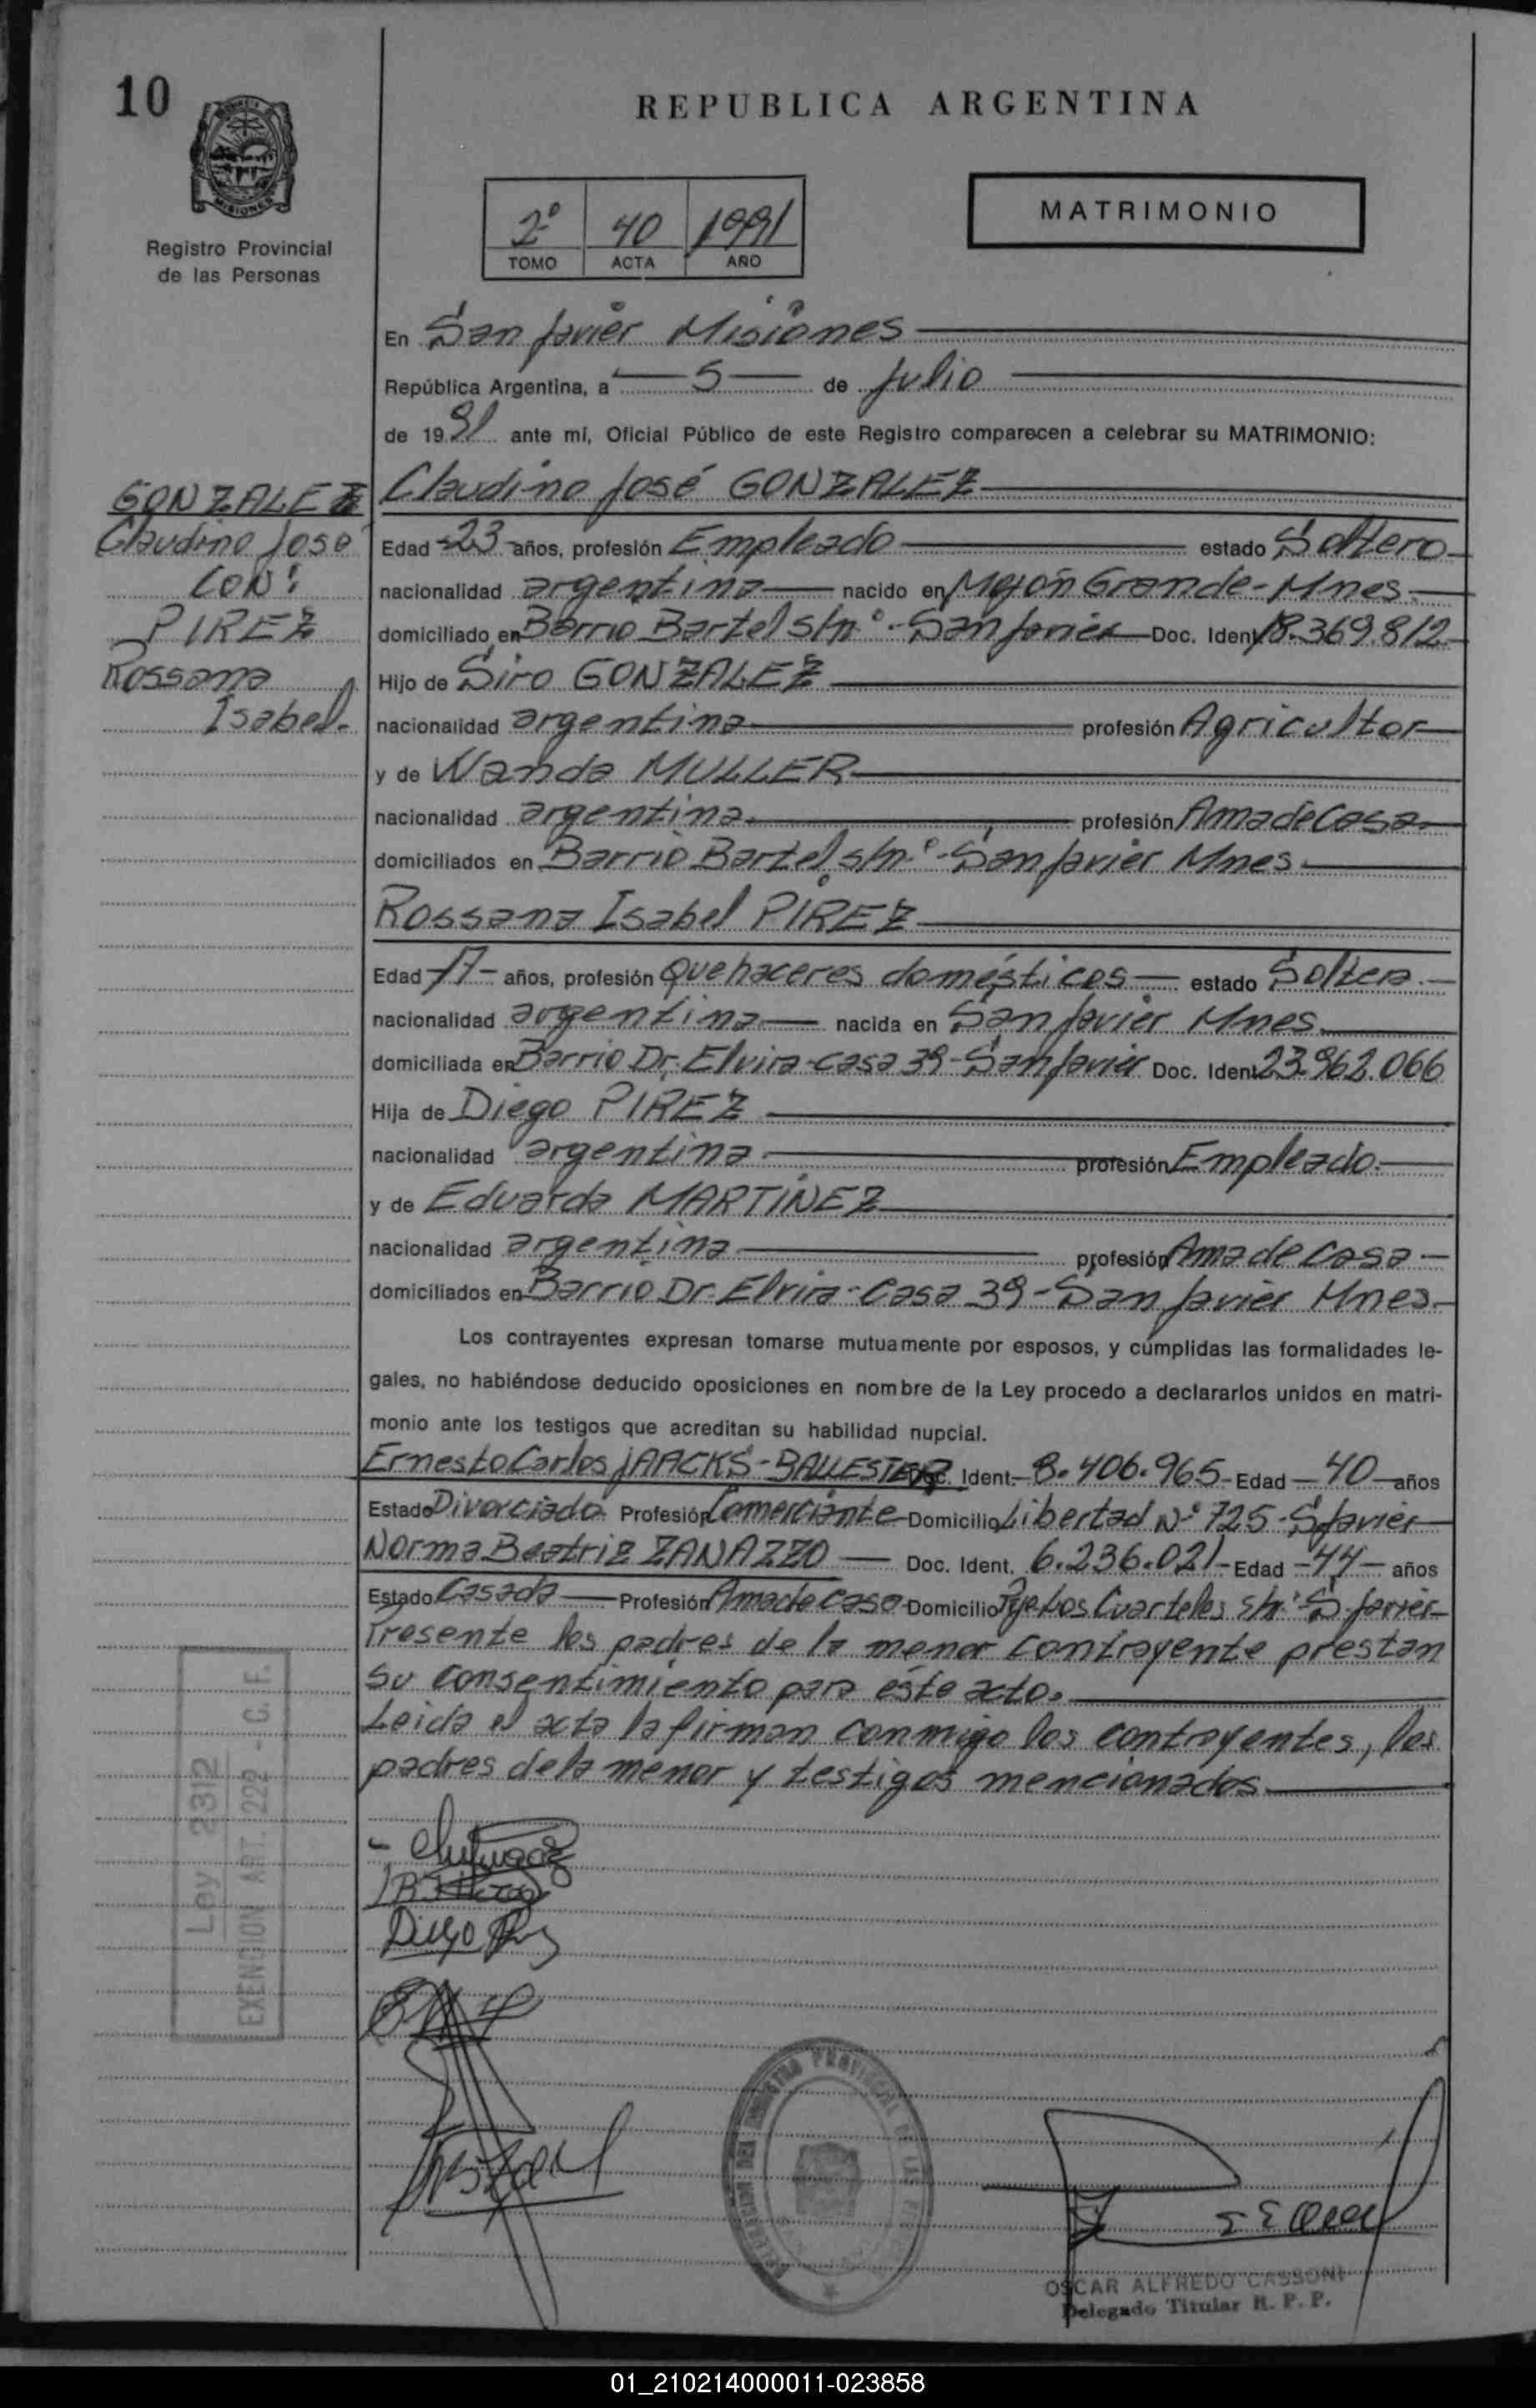 10
REPUBLICA ARGENTINA
MISIONES
Registro Provincial
de las Personas
2º 40 1991
TOMO ACTA AÑO
MATRIMONIO
En San Javier Misiones
República Argentina, a 5 de Julio
de 19 91 ante mí, Oficial Público de este Registro comparecen a celebrar su MATRIMONIO:
GONZALEZ
Claudino José
CON:
PIREZ
Rossana
Isabel-
Claudino José GONZALEZ
Edad -23- años, profesión Empleado estado Soltero
nacionalidad argentina nacido en Mojón Grande-Mnes.
domiciliado en Barrio Bartel s/nº-San Javier Doc. Ident 18.369.812
Hijo de Siro GONZALEZ
nacionalidad argentina profesión Agricultor
y de Wanda MULLER
nacionalidad argentina. profesión Ama de Casa
domiciliados en Barrio Bartel s/nº-San Javier Mnes.
Rossana Isabel PIREZ
Edad -17- años, profesión Quehaceres domésticos estado Soltera.
nacionalidad argentina nacida en San Javier Mnes.
domiciliada en Barrio Dr. Elvira-casa 39-San Javier Doc. Ident. 23.962.066
Hija de Diego PIREZ
nacionalidad argentina profesión Empleado.
y de Eduarda MARTINEZ
nacionalidad argentina profesión Ama de Casa
domiciliados en Barrio Dr. Elvira-Casa 39-San Javier Mnes.
Los contrayentes expresan tomarse mutuamente por esposos, y cumplidas las formalidades le-
gales, no habiéndose deducido oposiciones en nombre de la Ley procedo a declararlos unidos en matri-
monio ante los testigos que acreditan su habilidad nupcial.
Ernesto Carlos JAACKS-BALLESTER Doc. Ident. 8.406.965 Edad 40 años
Estado Divorciado Profesión Comerciante Domicilio Libertad Nº 725-S Javier
Norma Beatriz ZANAZZO Doc. Ident. 6.236.021 Edad -44- años
Estado Casada Profesión Ama de casa Domicilio Pje Los Cuarteles s/nº S. Javier
Presente los padres de la menor contrayente prestan
su consentimiento para este acto.
Leida el acta la firman conmigo los contrayentes, los
padres de la menor y testigos mencionados
Ley 2312
EXENCION ART. 222 - C. F.
Diego
OSCAR ALFREDO CASSONI
Delegado Titular R. P. P.
01_210214000011-023858